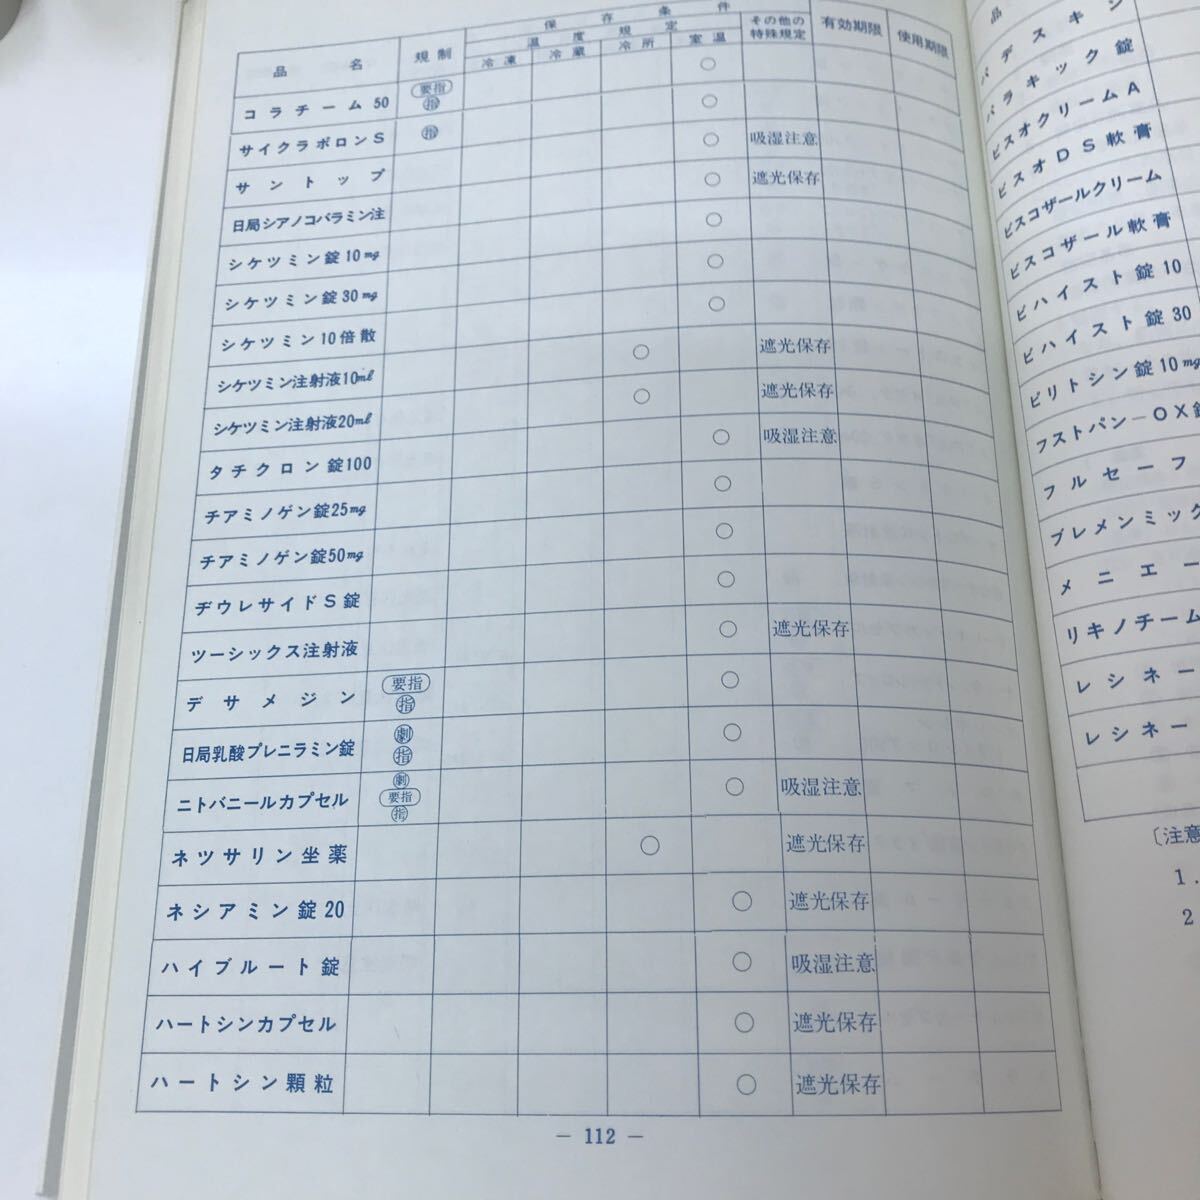 品名 規制 保存条件 有効期限 使用期限
温度規定 その他の特殊規定
冷凍 冷蔵 冷所 室温
コラチーム50 要指 指 ○
サイクラボロンS 指 ○
サントップ ○ 吸湿注意
日局シアノコバラミン注 ○ 遮光保存
シケツミン錠10mg ○
シケツミン錠30mg ○
シケツミン10倍散 ○
シケツミン注射液10ml ○ 遮光保存
シケツミン注射液20ml ○ 遮光保存
タチクロン錠100 ○ 吸湿注意
チアミノゲン錠25mg ○
チアミノゲン錠50mg ○
ヂウレサイドS錠 ○
ツーシックス注射液 ○ 遮光保存
デサメジン 要指 指 ○
日局乳酸プレニラミン錠 劇 指 ○
ニトバニールカプセル 劇 要指 指 ○ 吸湿注意
ネツサリン坐薬 ○ 遮光保存
ネシアミン錠20 ○ 遮光保存
ハイブルート錠 ○ 吸湿注意
ハートシンカプセル ○ 遮光保存
ハートシン顆粒 ○ 遮光保存
― 112 ―
品
パデスキン
パラキック錠
ビスオクリームA
ビスオDS軟膏
ビスコザールクリーム
ビスコザール軟膏
ビハイスト錠10
ビハイスト錠30
ピリトシン錠10mg
フストパン―OX錠
フルセーフ
ブレメンミック
メニエー
リキノチーム
レシネー
レシネー
〔注意
1.
2